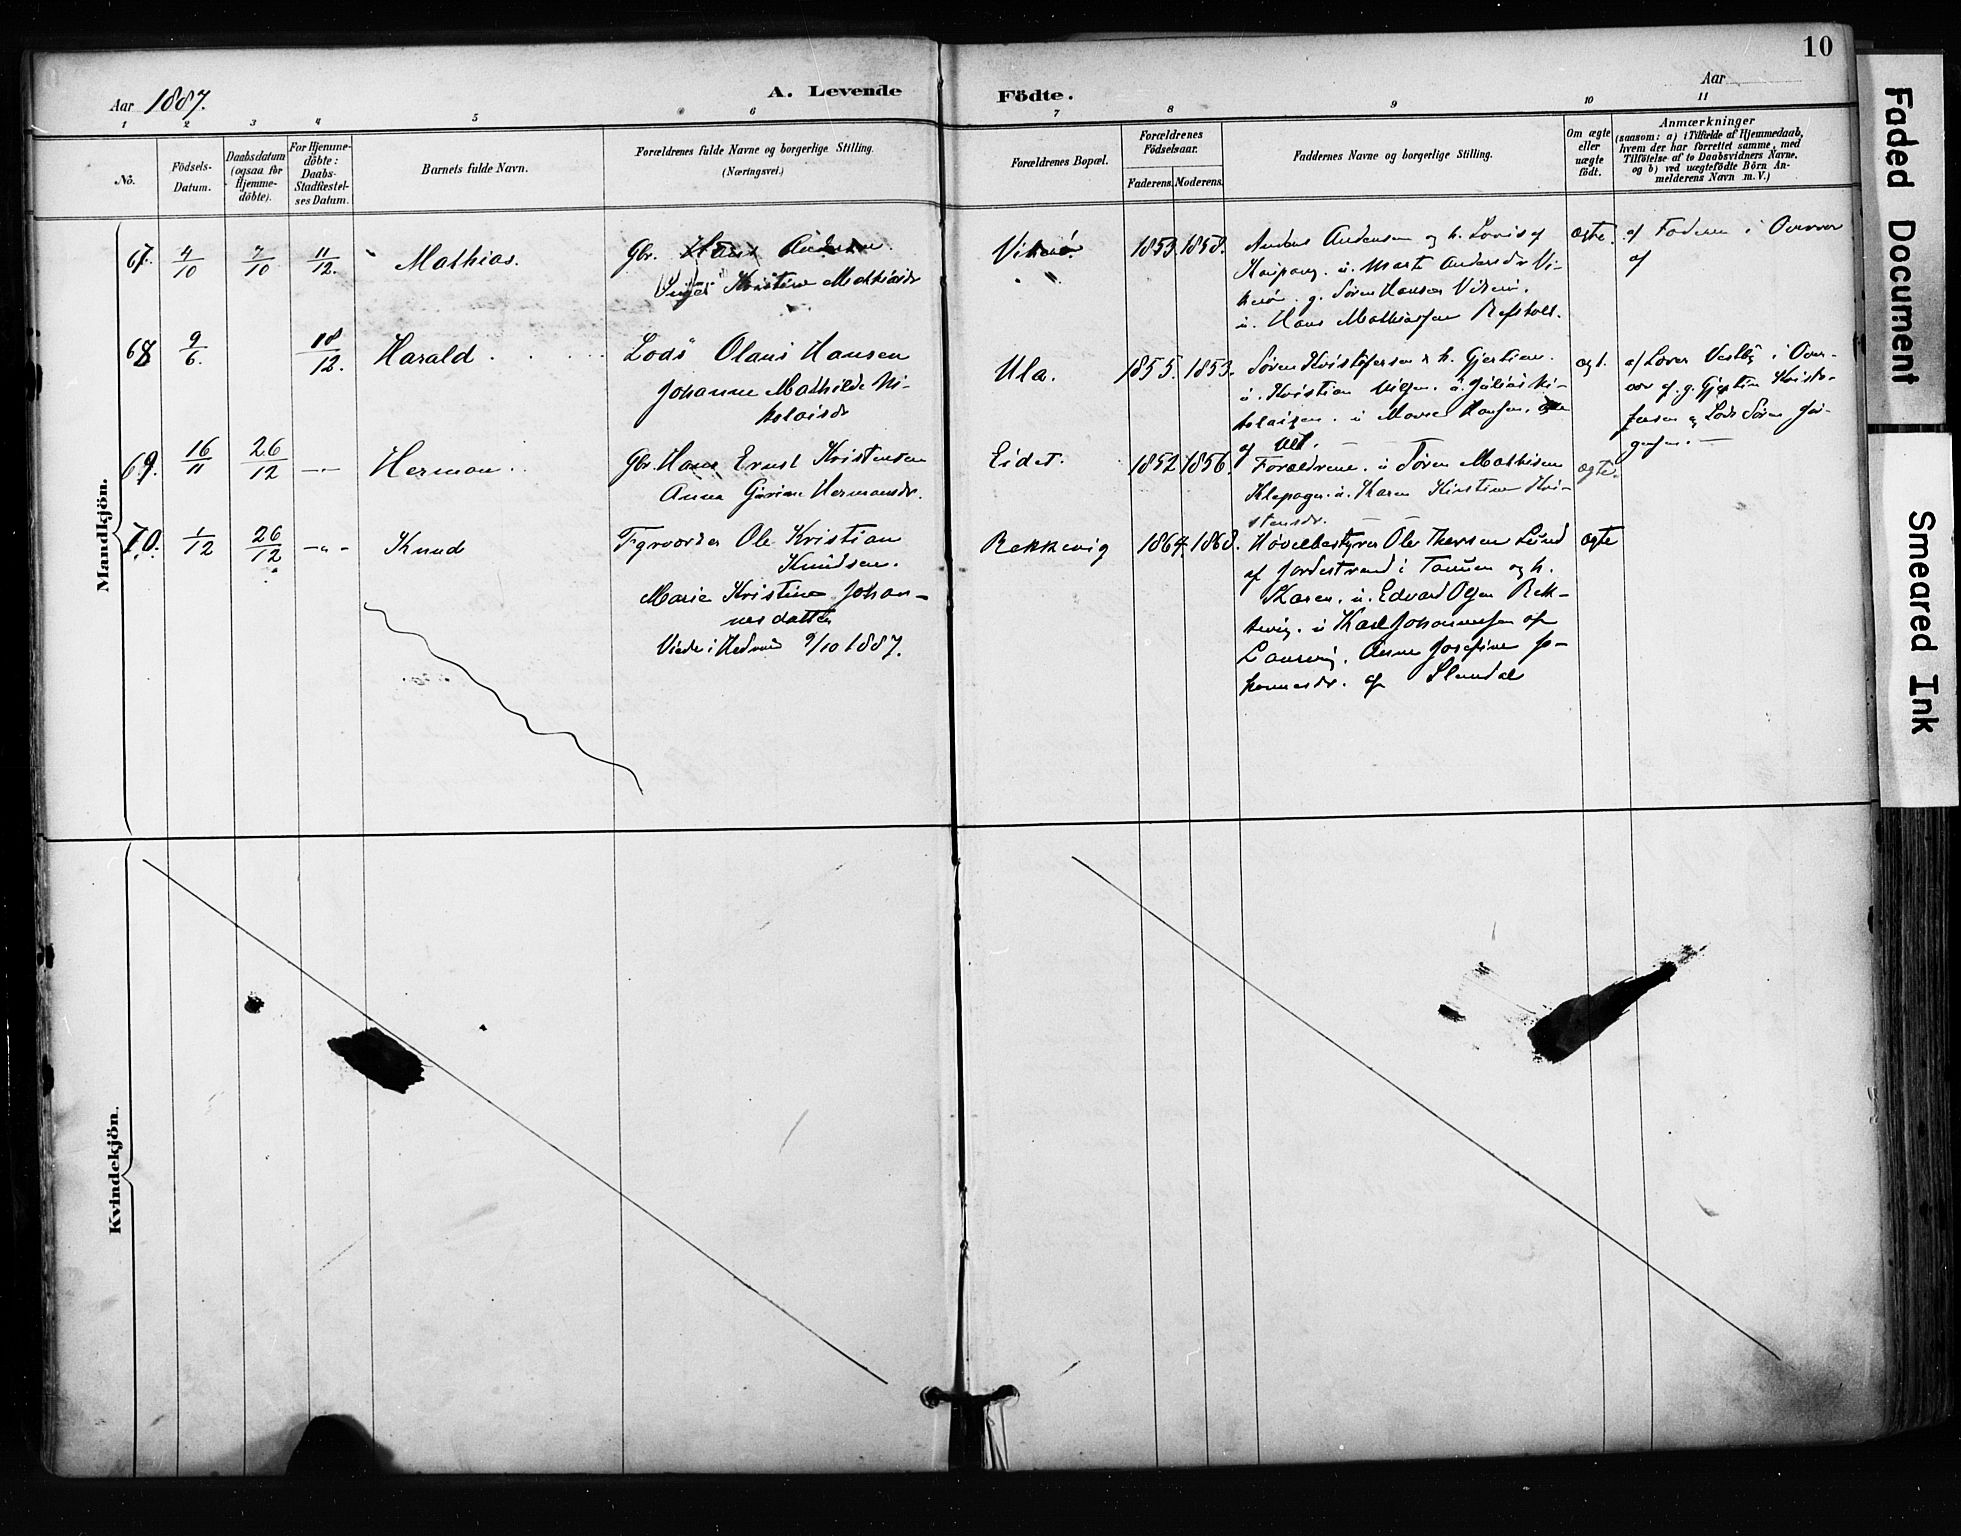 10
Aar 1887.
A. Levende
Födte.
Aar
1 2 3 4 5 6 7 8 9 10 11
No.
Födsels-
Datum.
Daabsdatum
(ogsaa for
Hjemme-
döbte).
For Hjemme-
döbte:
Daabs-
Stadfæstel-
ses Datum.
Barnets fulde Navn.
Forældrenes fulde Navne og borgerlige Stilling.
(Næringsvei.)
Forældrenes Bopæl.
Forældrenes
Födselsaar.
Faderens. Moderens.
Faddernes Navne og borgerlige Stilling.
Om ægte
eller
uægte
födt.
Anmærkninger
(saasom: a) i Tilfælde af Hjemmedaab,
hvem der har forrettet samme, med
Tilföielse af to Daabsvidners Navne,
og b) ved uægtefödte Börn An-
melderens Navn m. V.)
Mandkjön.
67. 4/10 7/10 11/12. Mathias.
Gbr. Hans Andersen.
Kristine Mathiasdr
1853. 1858.
Anders Andersen og h. Lovise
Kaupang. u. Marte Andersdr Vi-
g. Sören Hansen
u. Hans Mathiassen
ægte.
af Faderen i Overvær
af
68 9/6. 18/12. Harald.
Lods Olaus Hansen
Johanne Mathilde Ni-
kolaisdr
Ula. 1855. 1853.
Sören Kristofersen & h.
u. Kristian u. Julius Ni-
kolaisen. u Hansen,
af Ula.
ægt.
af i Over-
vær af g. Kristo-
fersen & Lods Sören Jör-
gensen. —
69. 16/11 26/12 —"— Herman.
Gbr. Hans Ernst Kristensen
Anna Hermansdr.
Eidet. 1852. 1856.
Forældrene. u Sören Mathisen
u. Karen Kirstine Kri-
stensdr.
ægte.
70. 1/12 26/12 —"— Knud
Fyrvorder Ole Kristian
Knudsen.
Marie Kristine Johan-
nesdatter
Viede i 9/10 1887.
Rekkevig 1864. 1868.
Høvelbestyrer Ole Lund
af i og h.
Karen. u. Edvard Olsen Rek-
kevig. u Karl Johannessen af
Laurvig. Anne Josefine Jo-
hannesdr. af
ægte
Kvindekjön.
Faded Document
Smeared Ink